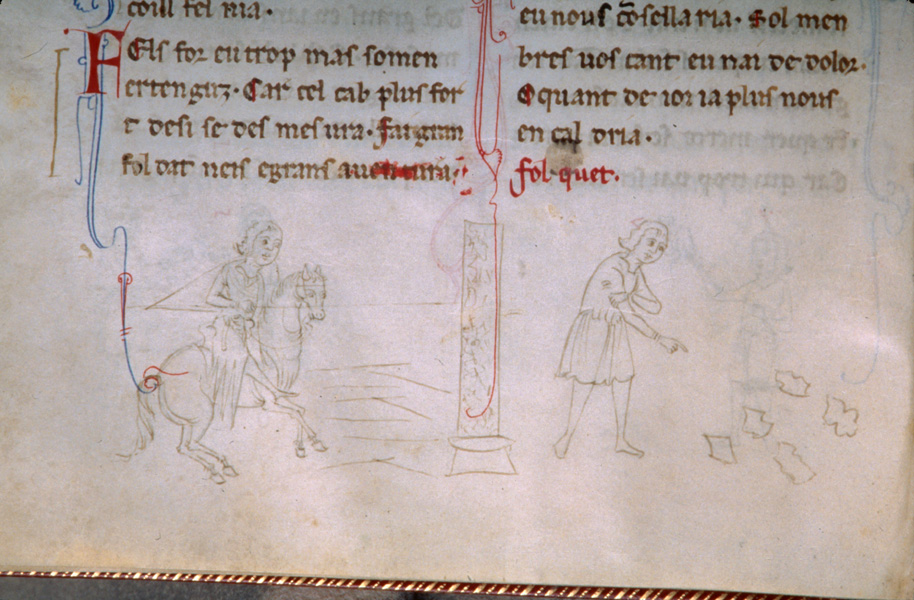 coill fel nia.
Fels for eu trop mas somen
ertenguz. Car cel cab plus for
t desi se des mesura. Fai gran
fol dat neis e grans auentura.
eu nous cõsellaria. Sol men
bres uos cant eu nai de dolor.
O quant de ioi ia plus nous
en cal dria.
folquet.